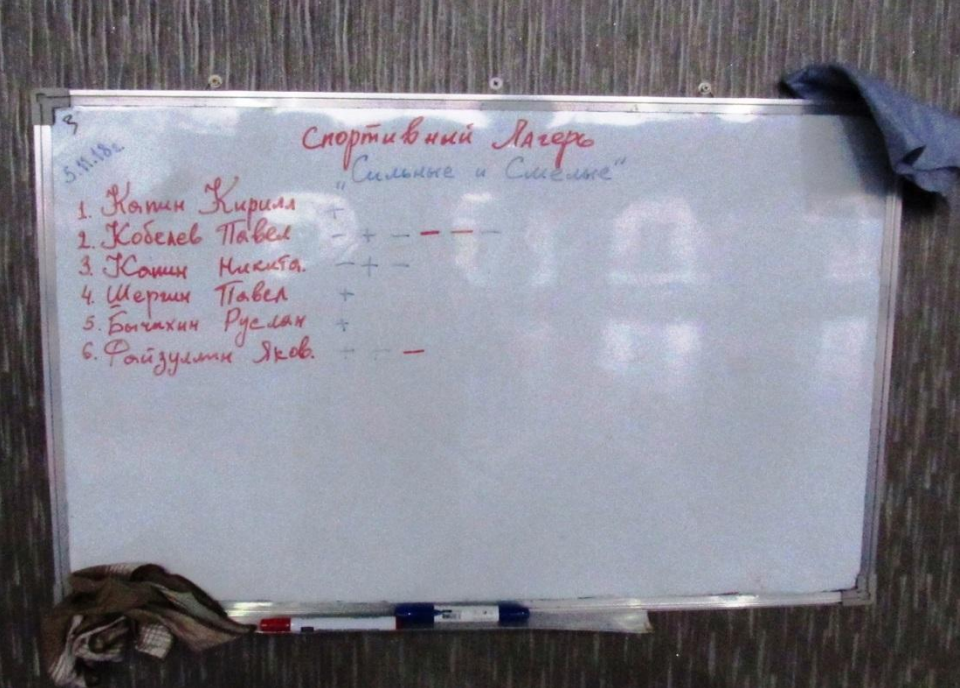 5.11.18г.
Спортивный Лагерь
"Сильные и Смелые"
1. Капин Кирилл +
2. Кобелев Павел - + - - - -
3. Капин Никита. - + -
4. Шергин Павел +
5. Бычихин Руслан +
6. Файзуллин Яков. + - -